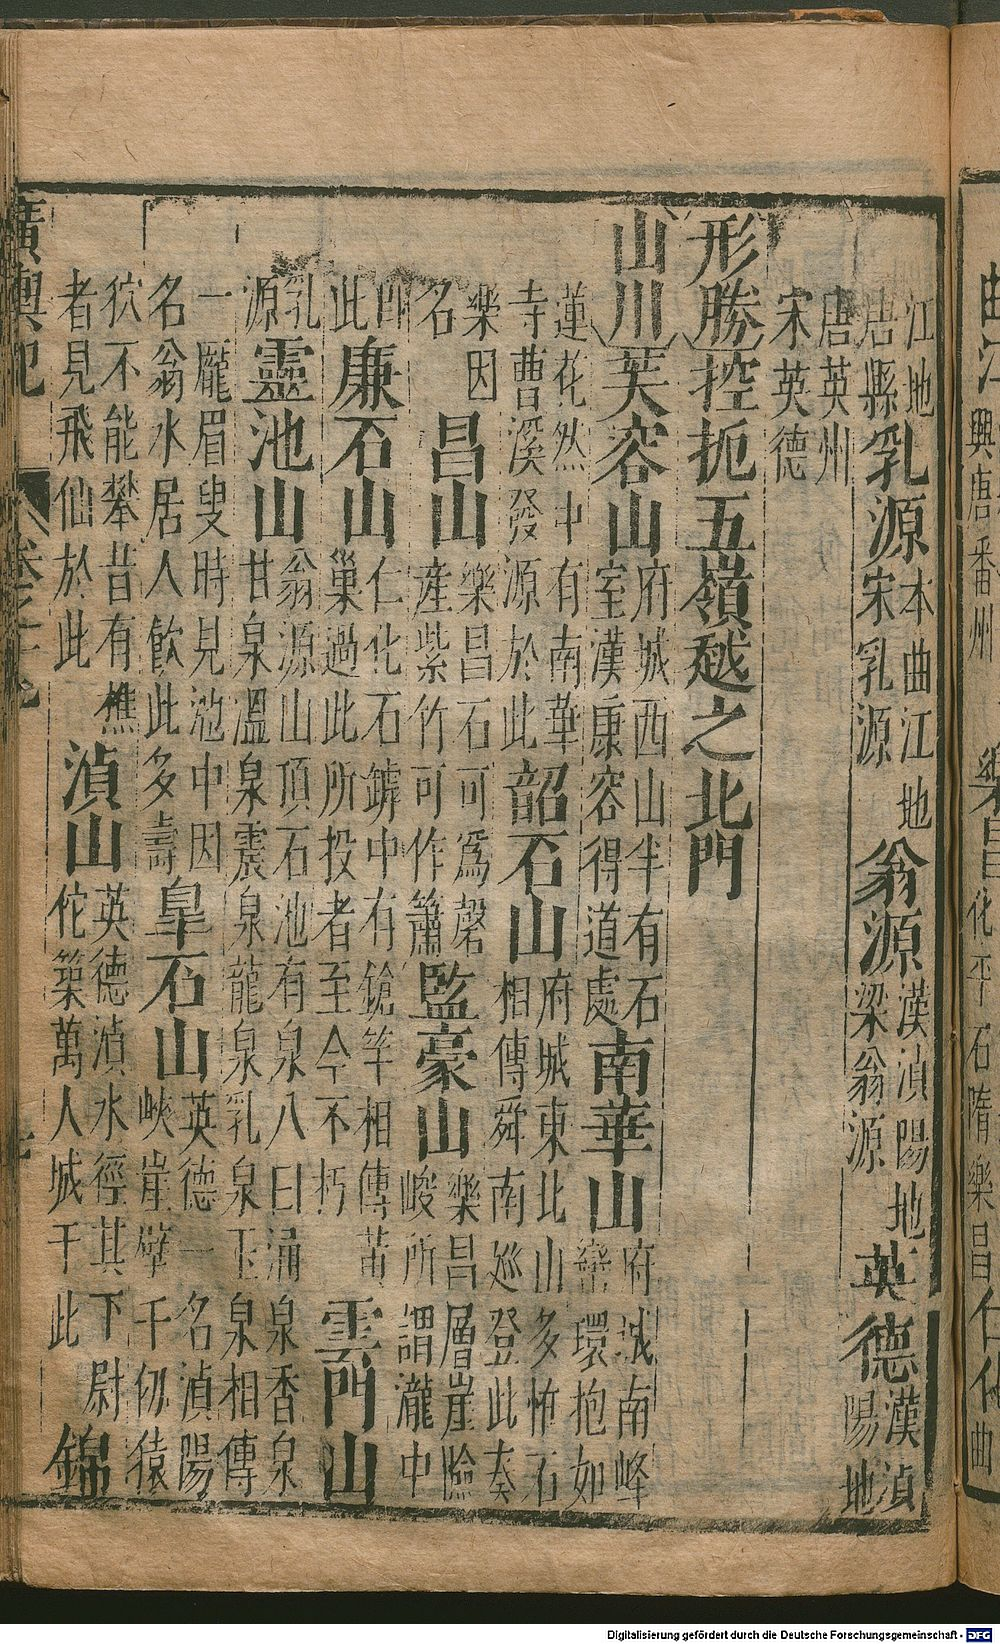 江地唐縣乳源本曲江地宋乳源翁源漢湞陽地梁翁源英德漢湞陽地
唐英州宋英德
形勝控扼五嶺越之北門
山川芙容山府城西山半有石室漢康容得道處南華山府城南峰巒環抱如
蓮花然中有南華寺曹溪發源於此韶石山府城東北山多怖石相傳舜南巡登此奏
樂因名昌山樂昌石可爲磬產紫竹可作簫監豪山樂昌層崖嶮峻所謂瀧中
此廉石山仁化石罅中有鎗竿相傳黃巢過此所投者至今不朽雲門山
乳源靈池山翁源山頂石池有泉八曰涌泉香泉甘泉溫泉震泉龍泉乳泉玉泉相傳
一龐眉叟時見池中因名翁水居人飲此多壽皐石山英德一名湞陽峽崖壁千仞猿
狖不能攀昔有樵者見飛仙於此湞山英德湞水徑其下尉佗築萬人城于此錦
廣輿記
Digitalisierung gefördert durch die Deutsche Forschungsgemeinschaft - DFG